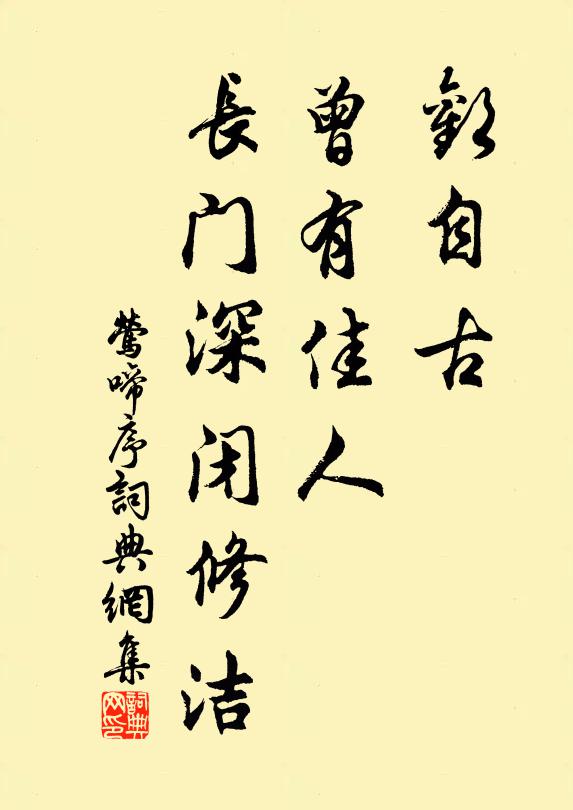 歎自古
曾有佳人
長门深闭修洁
鶯啼序詞典網集
詞典网印